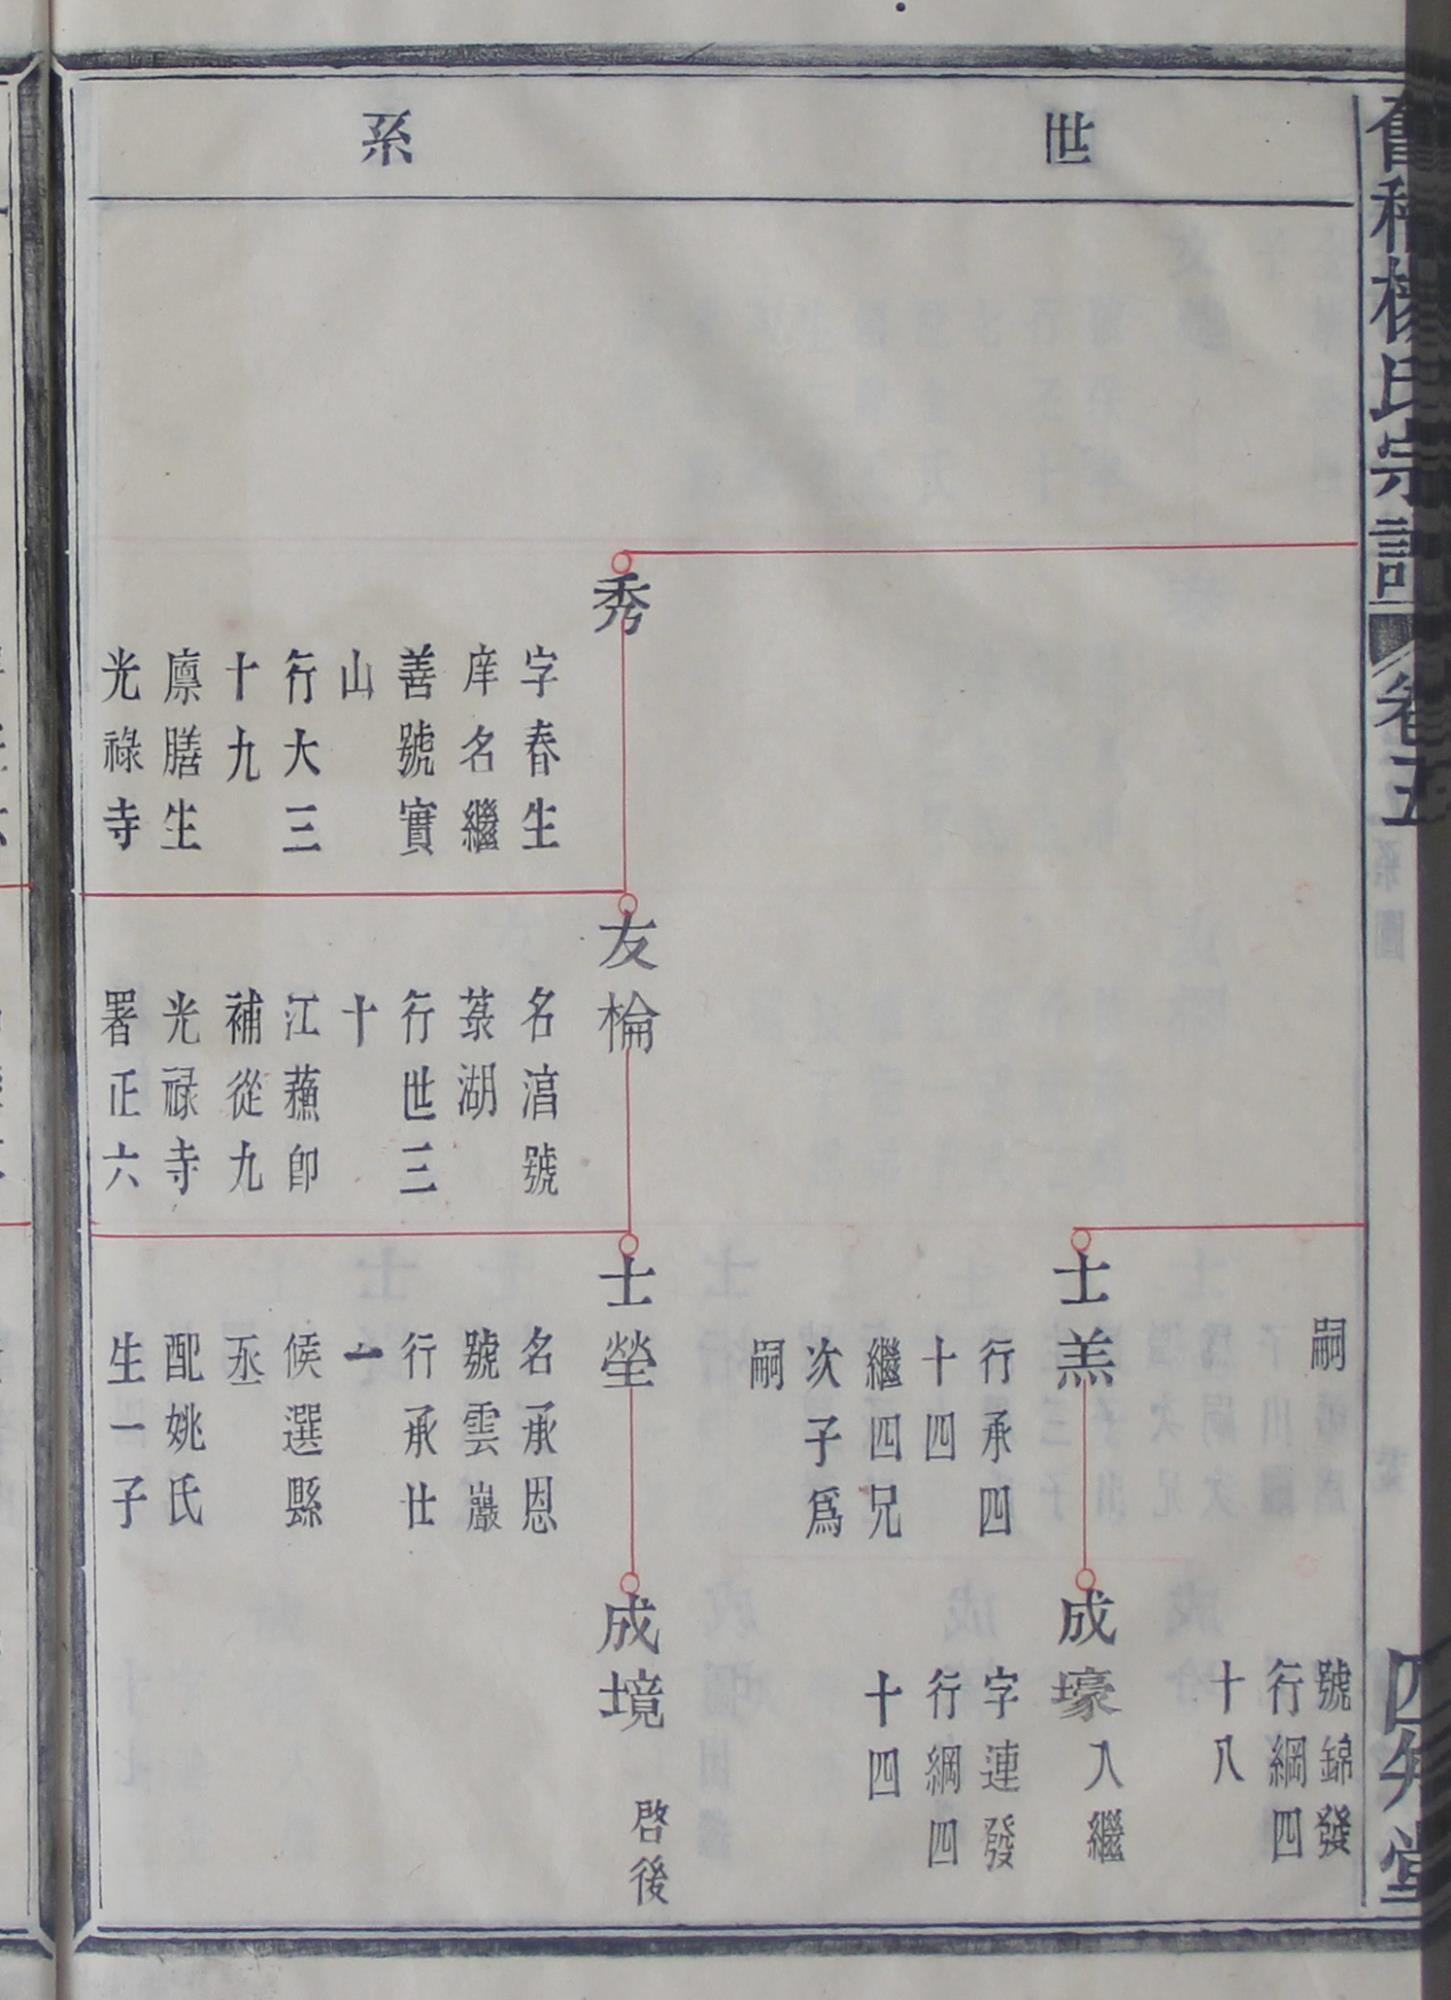 舊程楊氏宗譜
卷五
四知堂
世系
秀
字春生
庠名繼
善號實
山
行大三
十九
廪膳生
光祿寺
嗣
友棆
名湻號
菉湖
行世三
十
江蘓即
補從九
光禄寺
署正六
士羔
行承四
十四
繼四兄
次子爲
嗣
士瑩
名承恩
號雲巖
行承仕
一
候選縣
丞
配姚氏
生一子
號錦發
行綱四
十八
成壕
入繼
字連發
行綱四
十四
成境
啓後